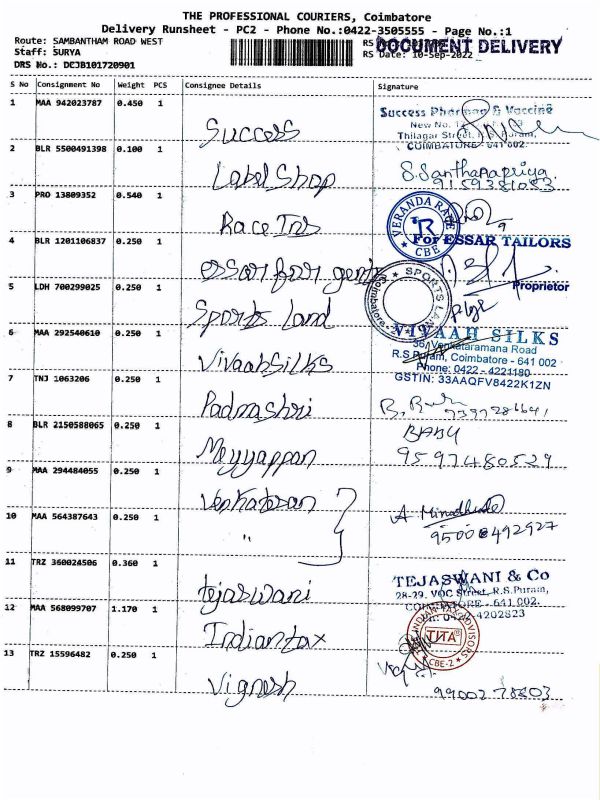 THE PROFESSIONAL COURIERS, Coimbatore
Delivery Runsheet - PC2 - Phone No.:0422-3505555 - Page No.:1
Route: SAMBANTHAM ROAD WEST
DOCUMENT DELIVERY
Staff: SURYA
RS Date: 10-Sep-2022
DRS No.: DCJB101720901
S No Consignment No Weight PCS Consignee Details Signature
1 MAA 942023787 0.450 1 Success
Success Pharmacy & Vaccine
New No.
Thilagar Street, R.S. Puram,
COIMBATORE - 641 002.
2 BLR 5500491398 0.100 1 Label Shop
S. Santhanapriya
9159381083
3 PRO 13809352 0.540 1 Race Inn
VERANDA RACE
CBE
4 BLR 1201106837 0.250 1 essar for gents
For ESSAR TAILORS
Proprietor
5 LDH 700299025 0.250 1 Sports land
SPORTS LAND
Coimbatore
6 MAA 292540610 0.250 1 VivaahSilks
VIVAAH SILKS
36, Venkataramana Road
R.S Puram, Coimbatore - 641 002
Phone: 0422 - 4221180
GSTIN: 33AAQFV8422K1ZN
7 TNJ 1063206 0.250 1 Padmashri
8 BLR 2150588065 0.250 1 Meyyappan
BABU
9597480529
9 MAA 294484055 0.250 1 Venkatesan
10 MAA 564387643 0.250 1 "
95008492927
11 TRZ 360024506 0.360 1 tejaswani
TEJASWANI & Co
28-29, VOC Street, R.S.Puram,
COIMBATORE - 641 002.
4202823
12 MAA 568099707 1.170 1 Indiantax
INDIAN TAX ADVISORS
CBE-2
13 TRZ 15596482 0.250 1 Vignesh
9900278803